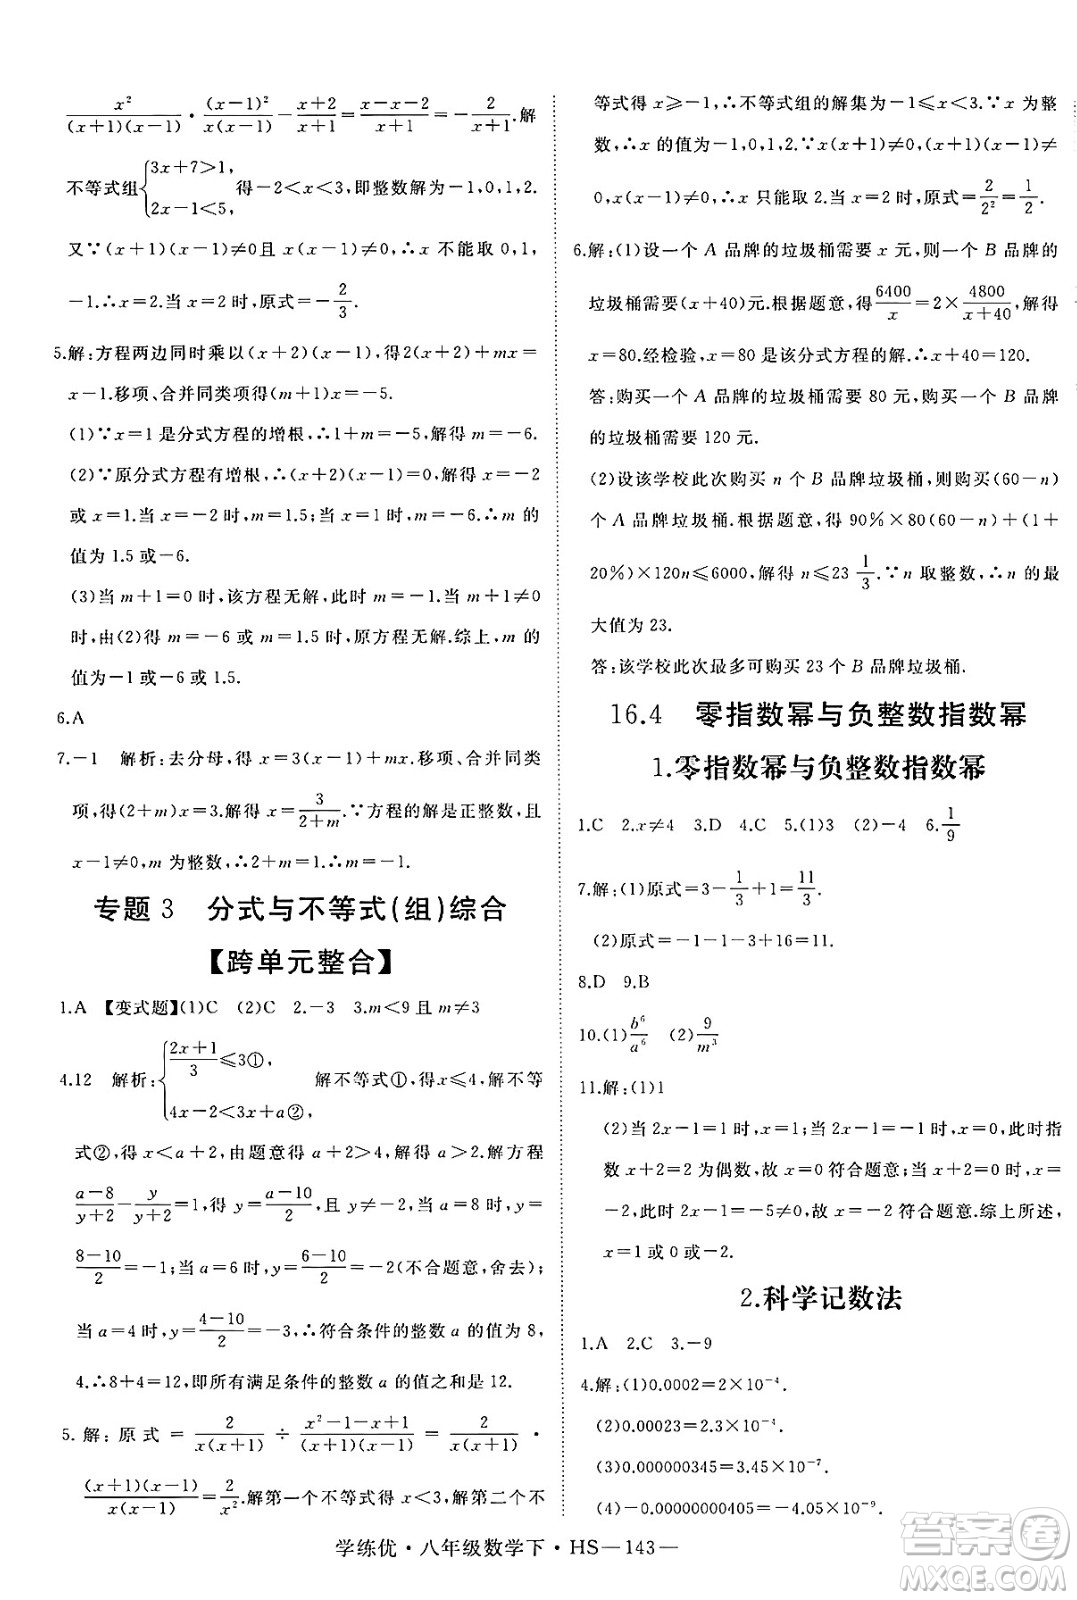 x²/((x+1)(x−1))·(x−1)²/(x(x−1))−(x+2)/(x+1)=(x−x−2)/(x+1)=−2/(x+1).解
不等式组{3x+7>1, 2x−1<5,得−2<x<3,即整数解为−1,0,1,2.
又∵(x+1)(x−1)≠0且x≠0,∴x不能取0,1,
−1.∴x=2.当x=2时,原式=−2/3.
5.解:方程两边同时乘以(x+2)(x−1),得2(x+2)+mx=
x−1.移项、合并同类项得(m+1)x=−5.
(1)∵x=1是分式方程的增根,∴1+m=−5,解得m=−6.
(2)∵原分式方程有增根,∴(x+2)(x−1)=0,解得x=−2
或x=1.当x=−2时,m=1.5;当x=1时,m=−6.∴m的
值为1.5或−6.
(3)当m+1=0时,该方程无解,此时m=−1.当m+1≠0
时,由(2)得m=−6或m=1.5时,原方程无解.综上,m的
值为−1或−6或1.5.
6.A
7.−1 解析:去分母,得x=3(x−1)+mx.移项、合并同类
项,得(2+m)x=3,解得x=3/(2+m).∵方程的解是正整数,且
x−1≠0,m为整数,∴2+m=1.∴m=−1.
专题3 分式与不等式(组)综合
【跨单元整合】
1.A 【变式题】(1)C (2)C 2.−3 3.m<9且m≠3
4.12 解析:{(2x+1)/3≤3①, 4x−2<3x+a②,解不等式①,得x≤4,解不等
式②,得x<a+2,由题意得a+2>4,∴a>2.解方程
(a−8)/(y+2)−y/(y+2)=1,得y=(a−10)/2,且y≠−2,当a=8时,y=
(8−10)/2=−1;当a=6时,y=(6−10)/2=−2(不合题意,舍去);
当a=4时,y=(4−10)/2=−3,∴符合条件的整数a的值为8,
4.∴8+4=12,即所有满足条件的整数a的值之和为12.
5.解:原式=2/(x(x+1))÷(x²−1−x+1)/((x+1)(x−1))=2/(x(x+1))·
((x+1)(x−1))/(x(x−1))=2/x².解第一个不等式得x<3,解第二个不
等式得x≥−1,∴不等式组的解集为−1≤x<3.∵x为整
数,∴x的值为−1,0,1,2.∵x≠0,(x+1)(x−1)≠
0,x(x−1)≠0,∴x只能取2.当x=2时,原式=2/2²=1/2.
6.解:(1)设一个A品牌的垃圾桶需要x元,则一个B品牌的
垃圾桶需要(x+40)元.根据题意,得6400/x=2×4800/(x+40),解得
x=80.经检验,x=80是该分式方程的解.∴x+40=120.
答:购买一个A品牌的垃圾桶需要80元,购买一个B品牌
的垃圾桶需要120元.
(2)设该学校此次购买n个B品牌垃圾桶,则购买(60−n)
个A品牌垃圾桶.根据题意,得90%×80(60−n)+(1+
20%)×120n≤6000,解得n≤23 1/3.∵n取整数,∴n的最
大值为23.
答:该学校此次最多可购买23个B品牌垃圾桶.
16.4 零指数幂与负整数指数幂
1.零指数幂与负整数指数幂
1.C 2.x≠4 3.D 4.C 5.(1)3 (2)−4 6.1/9
7.解:(1)原式=3−1/3+1=11/3.
(2)原式=−1−1−3+16=11.
8.D 9.B
10.(1)b⁶/a⁶ (2)9/m³
11.解:(1)1
(2)当2x−1=1时,x=1;当2x−1=−1时,x=0,此时指
数x+2=2为偶数,故x=0符合题意;当x+2=0时,x=
−2,此时2x−1=−5≠0,故x=−2符合题意.综上所述,
x=1或0或−2.
2.科学记数法
1.A 2.C 3.−9
4.解:(1)0.0002=2×10⁻⁴.
(2)0.00023=2.3×10⁻⁴.
(3)0.000000345=3.45×10⁻⁷.
(4)−0.00000000405=−4.05×10⁻⁹.
学练优·八年级数学下·HS—143—
答案圈
MXQE.COM